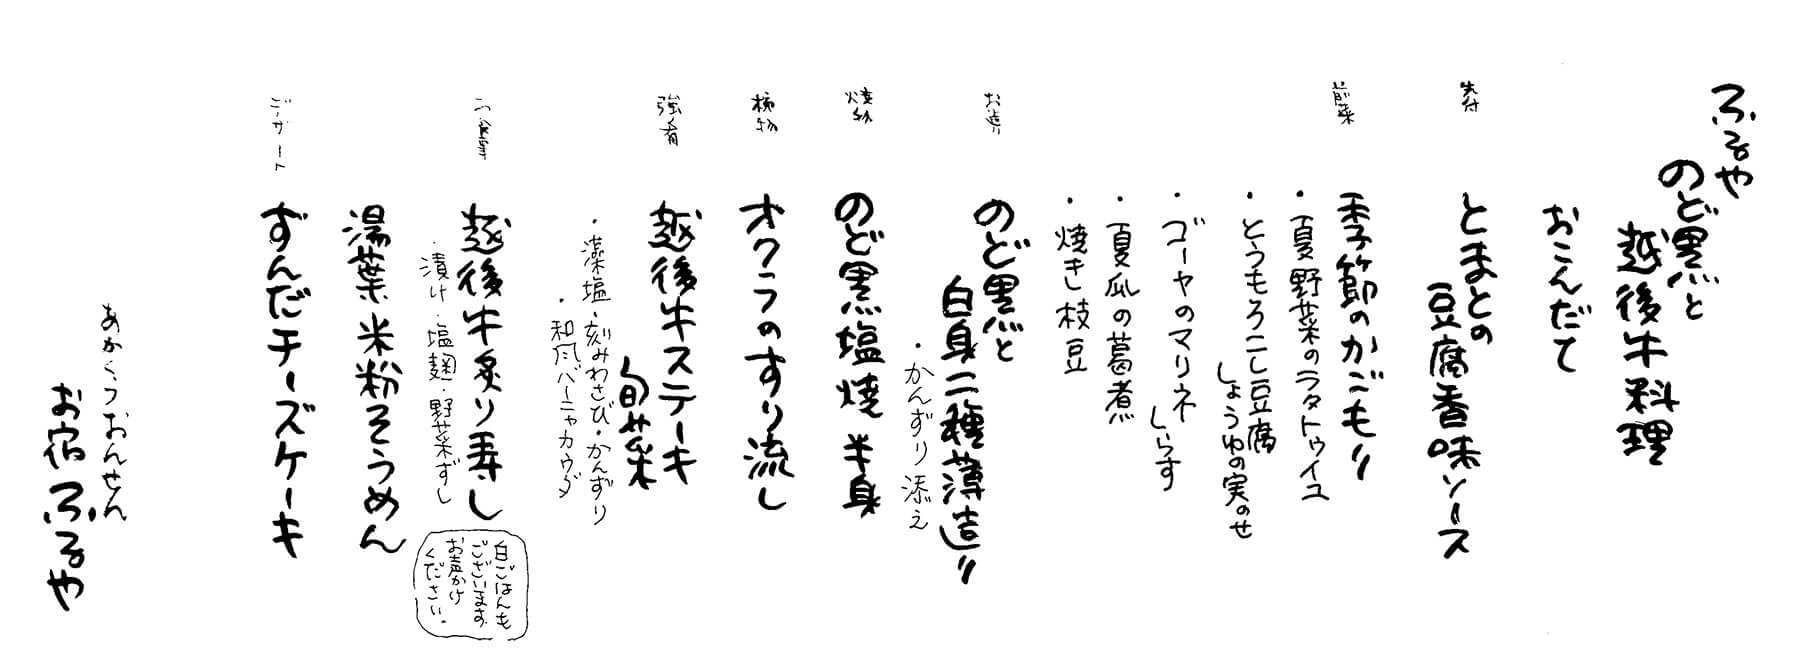 ふるや
のど黒と
越後牛料理
おこんだて
先付
とまとの
豆腐香味ソース
前菜
季節のかごもり
・夏野菜のラタトゥイユ
・とうもろこし豆腐
しょうゆの実のせ
・ゴーヤのマリネ
しらす
・夏瓜の葛煮
・焼き枝豆
お造り
のど黒と
白身二種薄造り
・かんずり添え
焼物
のど黒塩焼 半身
椀物
オクラのすり流し
強肴
越後牛ステーキ
旬菜
・藻塩・刻みわさび・かんずり
・和風バーニャカウダ
お食事
越後牛炙り寿し
・漬け・塩麹・野菜ずし
白ごはんも
ございます
お声かけ
ください。
湯葉米粉そうめん
デザート
ずんだチーズケーキ
あかくらおんせん
お宿ふるや